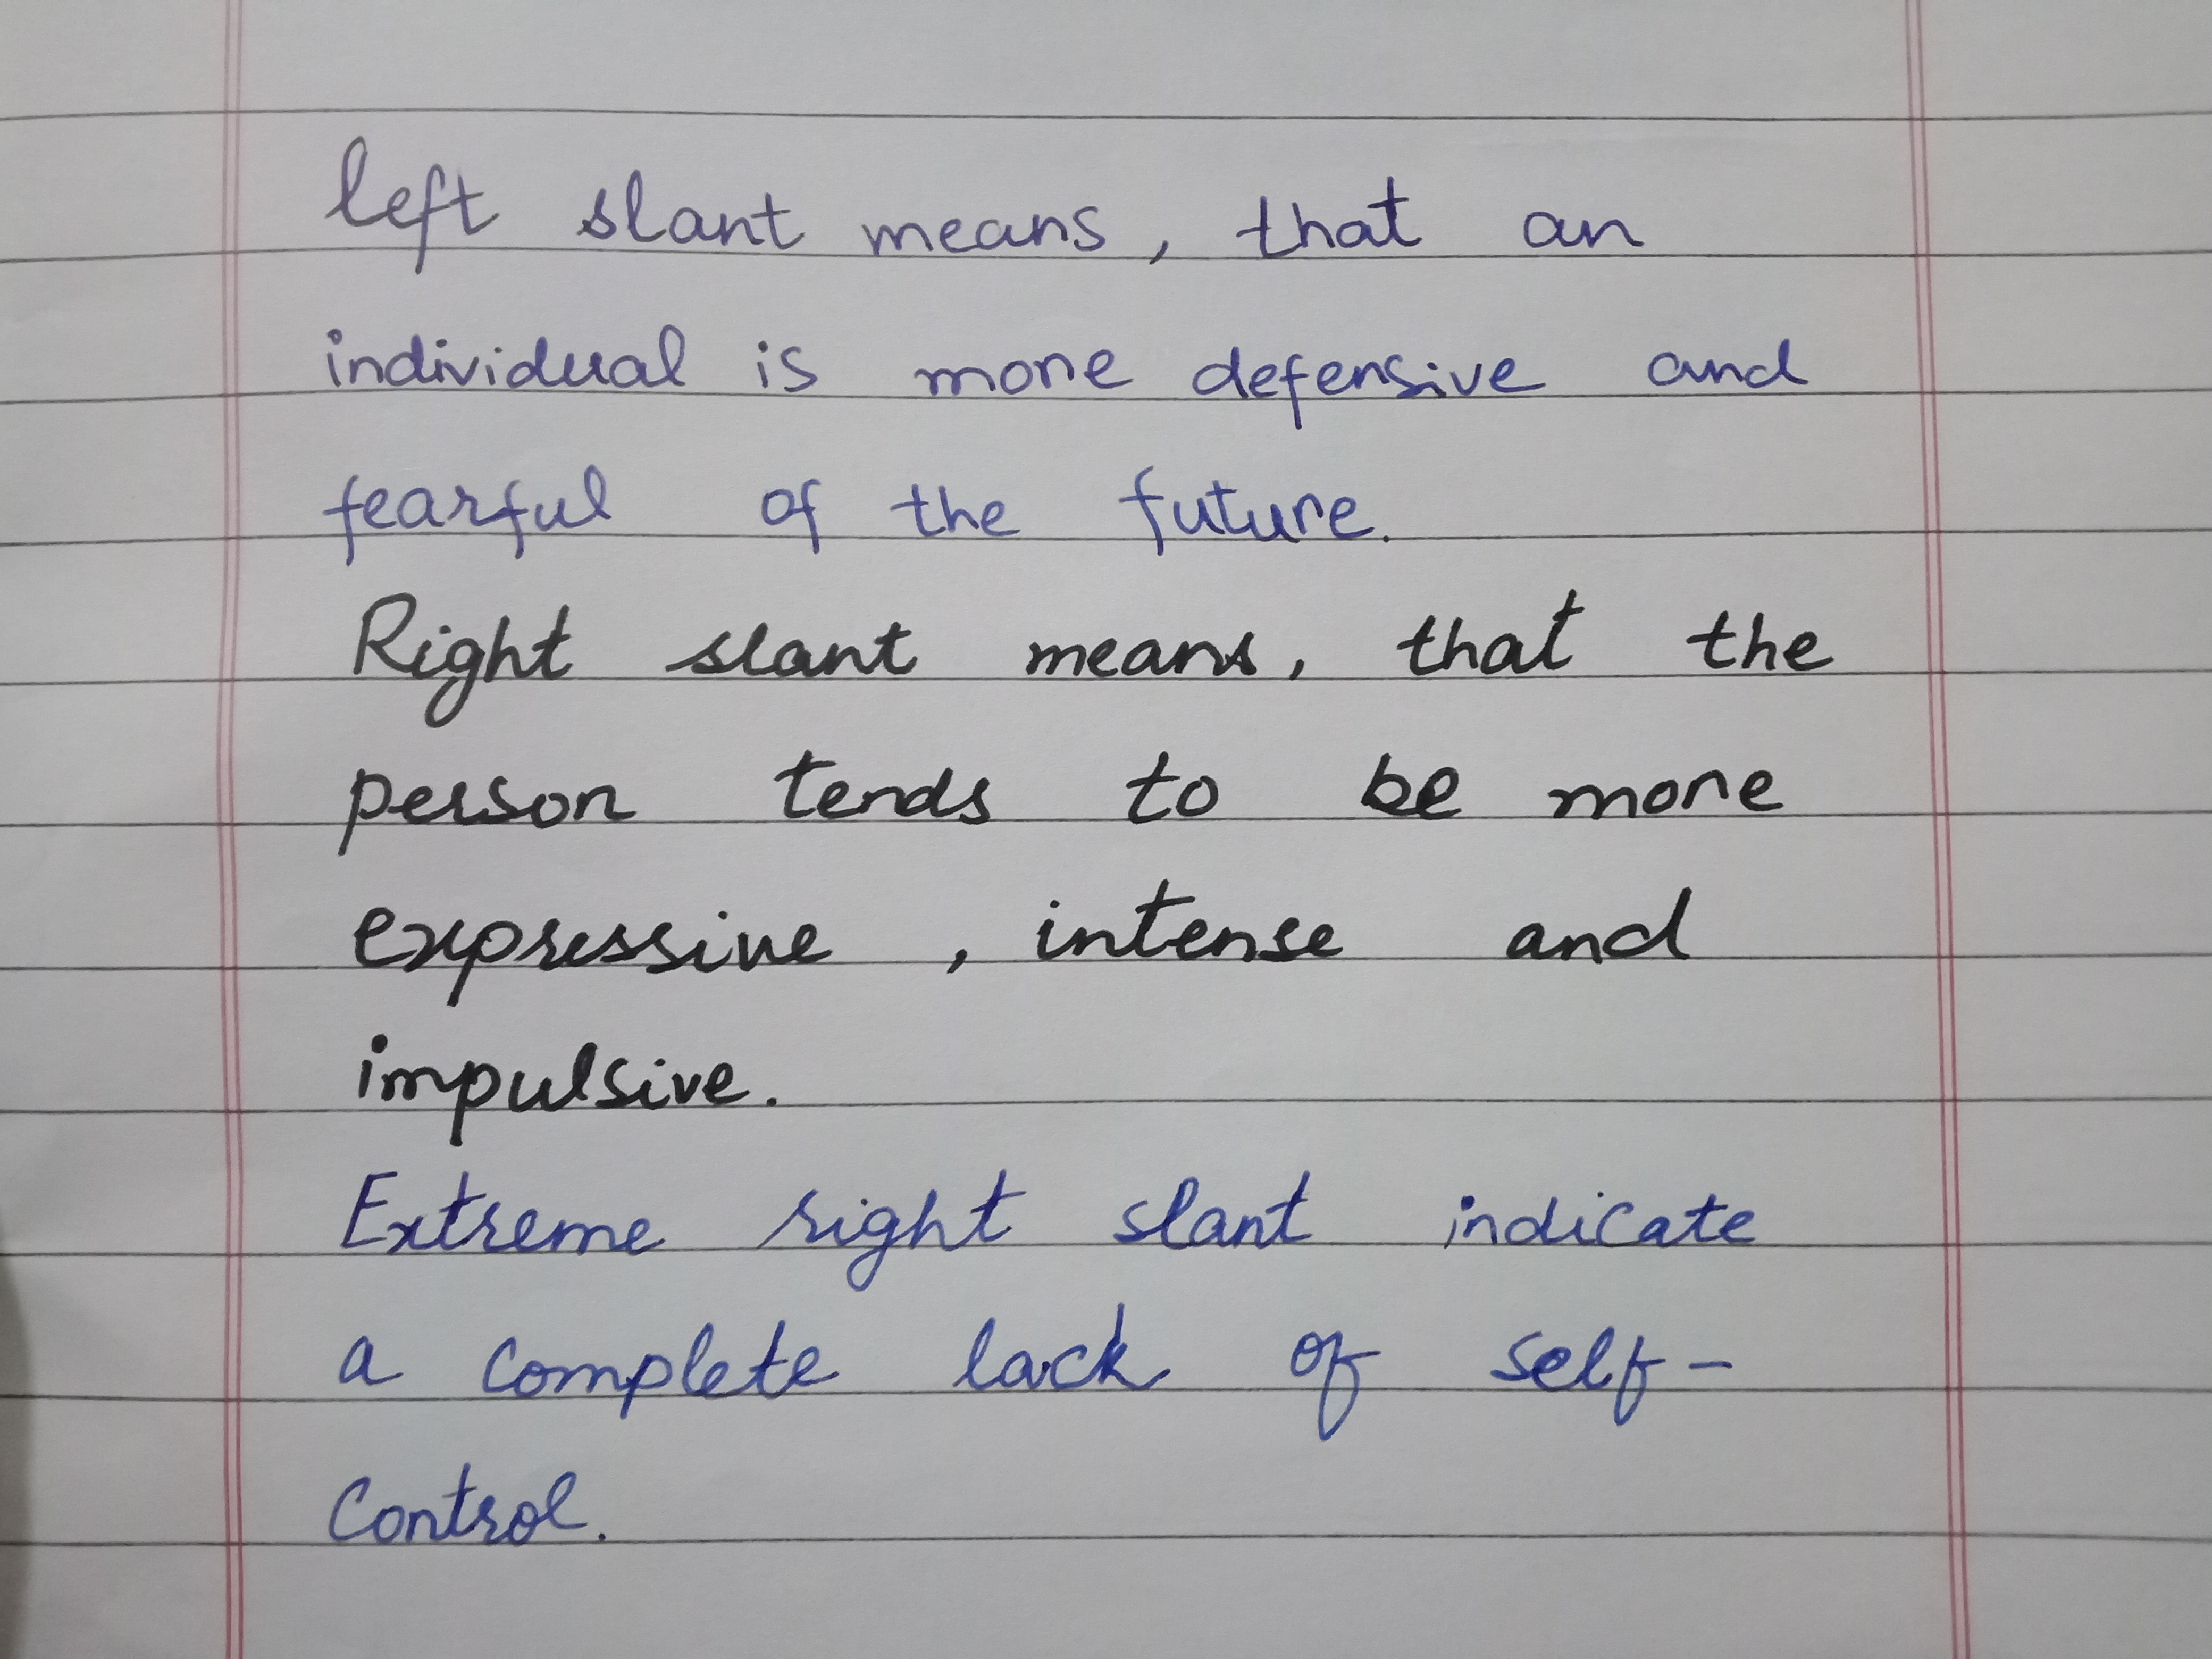 left slant means, that an
individual is more defensive and
fearful of the future.
Right slant means, that the
person tends to be more
expressive , intense and
impulsive.
Extreme right slant indicate
a complete lack of self-
Control.